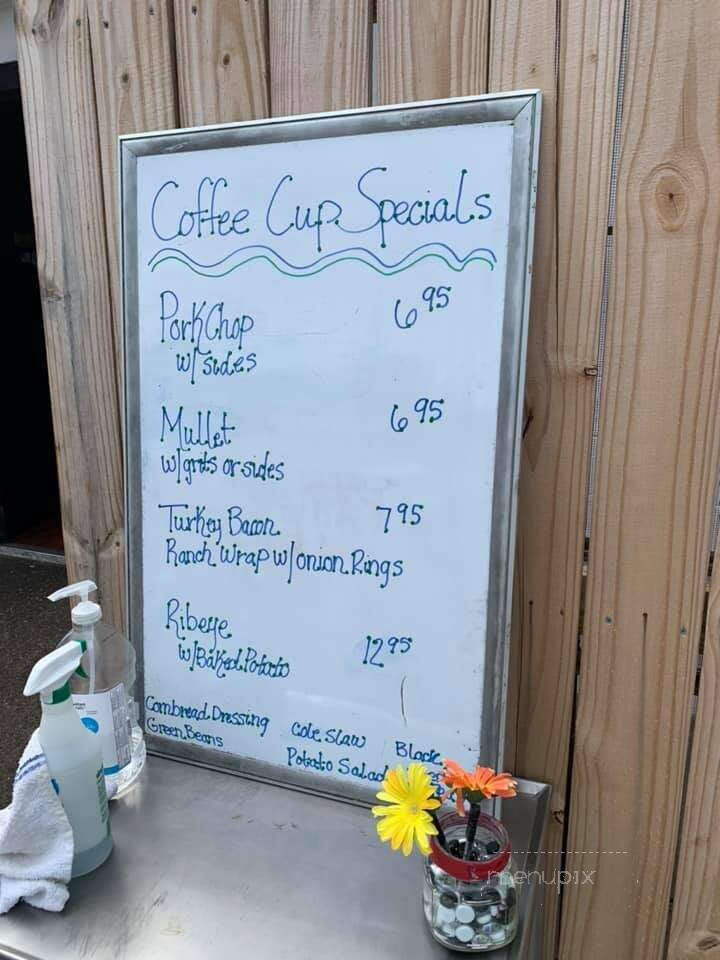 Coffee Cup Specials
Pork Chop 6 95
w/ sides
Mullet 6 95
w/grits or sides
Turkey Bacon 7 95
Ranch Wrap w/onion Rings
Ribeye
w/Baked Potato 12 95
Cornbread Dressing Cole Slaw Black
Green Beans Potato Salad
menupix